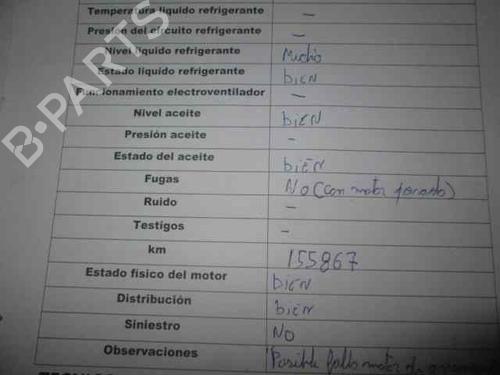 Temperatura liquido refrigerante –
Presion del circuito refrigerante –
Nivel liquido refrigerante Mucho
Estado liquido refrigerante bien
Funcionamiento electroventilador –
Nivel aceite biEN
Presión aceite -
Estado del aceite biEN
Fugas No (con motor parado)
Ruido –
Testigos –
km 155867
Estado físico del motor biEN
Distribución biEN
Siniestro NO
Observaciones Posible fallo motor de
B-PARTS